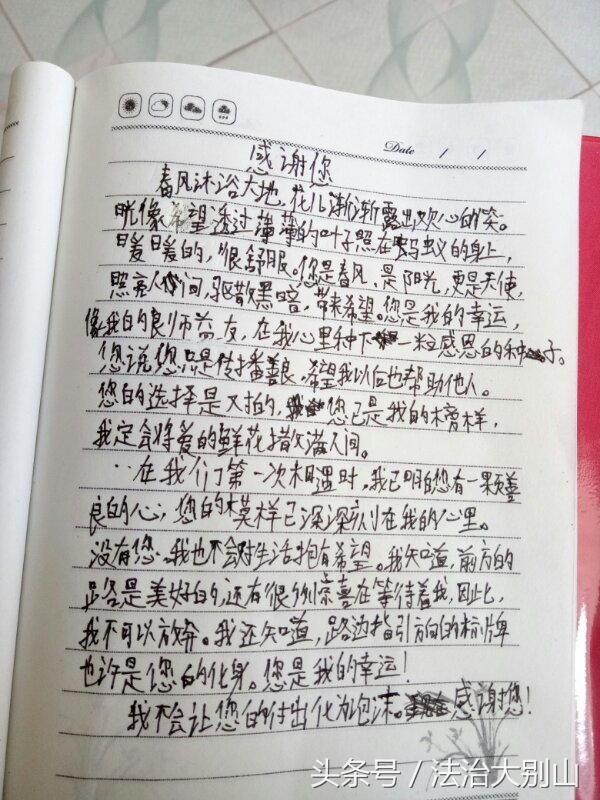 Date / /
感谢你
春风沐浴大地,花儿渐渐露出欢心的笑。
晄像希望透过薄薄的叶子照在蚂蚁的身上,
暖暖的,很舒服。您是春风,是阳光,更是天使,
照亮人间,驱散黑暗,带来希望。您是我的幸运,
像我的良师益友,在我心里种下一粒感恩的种子。
您说您只是传播善良,希望我以后也帮助他人。
您的选择是对的,您已是我的榜样,
我定会将爱的鲜花撒满人间。
在我们第一次相遇时,我已明白您有一颗善
良的心,您的模样已深深刻在我的心里。
没有您,我也不会对生活抱有希望。我知道,前方的
路是美好的,还有很多惊喜在等待着我,因此,
我不可以放弃。我还知道,路边指引方向的标牌
也许是您的化身。您是我的幸运!
我不会让您的付出化为泡沫。感谢您!
头条号 / 法治大别山